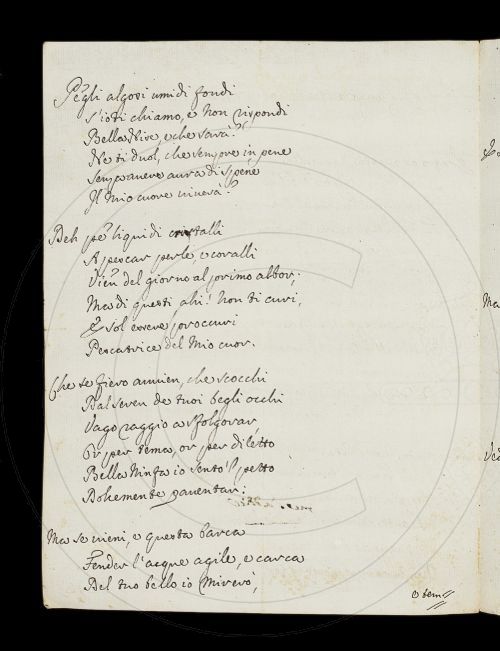 Pe'gli algosi umidi fondi
S'io ti chiamo, e non rispondi
Bella Nise, e che sarà?
Ne ti duol, che sempre in pene
Senza avere aura di spene
Il mio cuore viverà?
Deh pe' liquidi cristalli
A pescar perle, e coralli
Vien del giorno al primo albor;
Ma di questi ahi! non ti curi,
E sol essere proccuri
Pescatrice del mio cuor.
Che se fiero avvien, che scocchi
Dal seren de tuoi begli occhi
Vago raggio a sfolgorar,
Or per tema, or per diletto
Bella Ninfa io sento il petto
Dolcemente paventar:
Ma se vieni, e questa barca
Fender l'acque agile, e carca
Del tuo bello io mirerò,
O ben